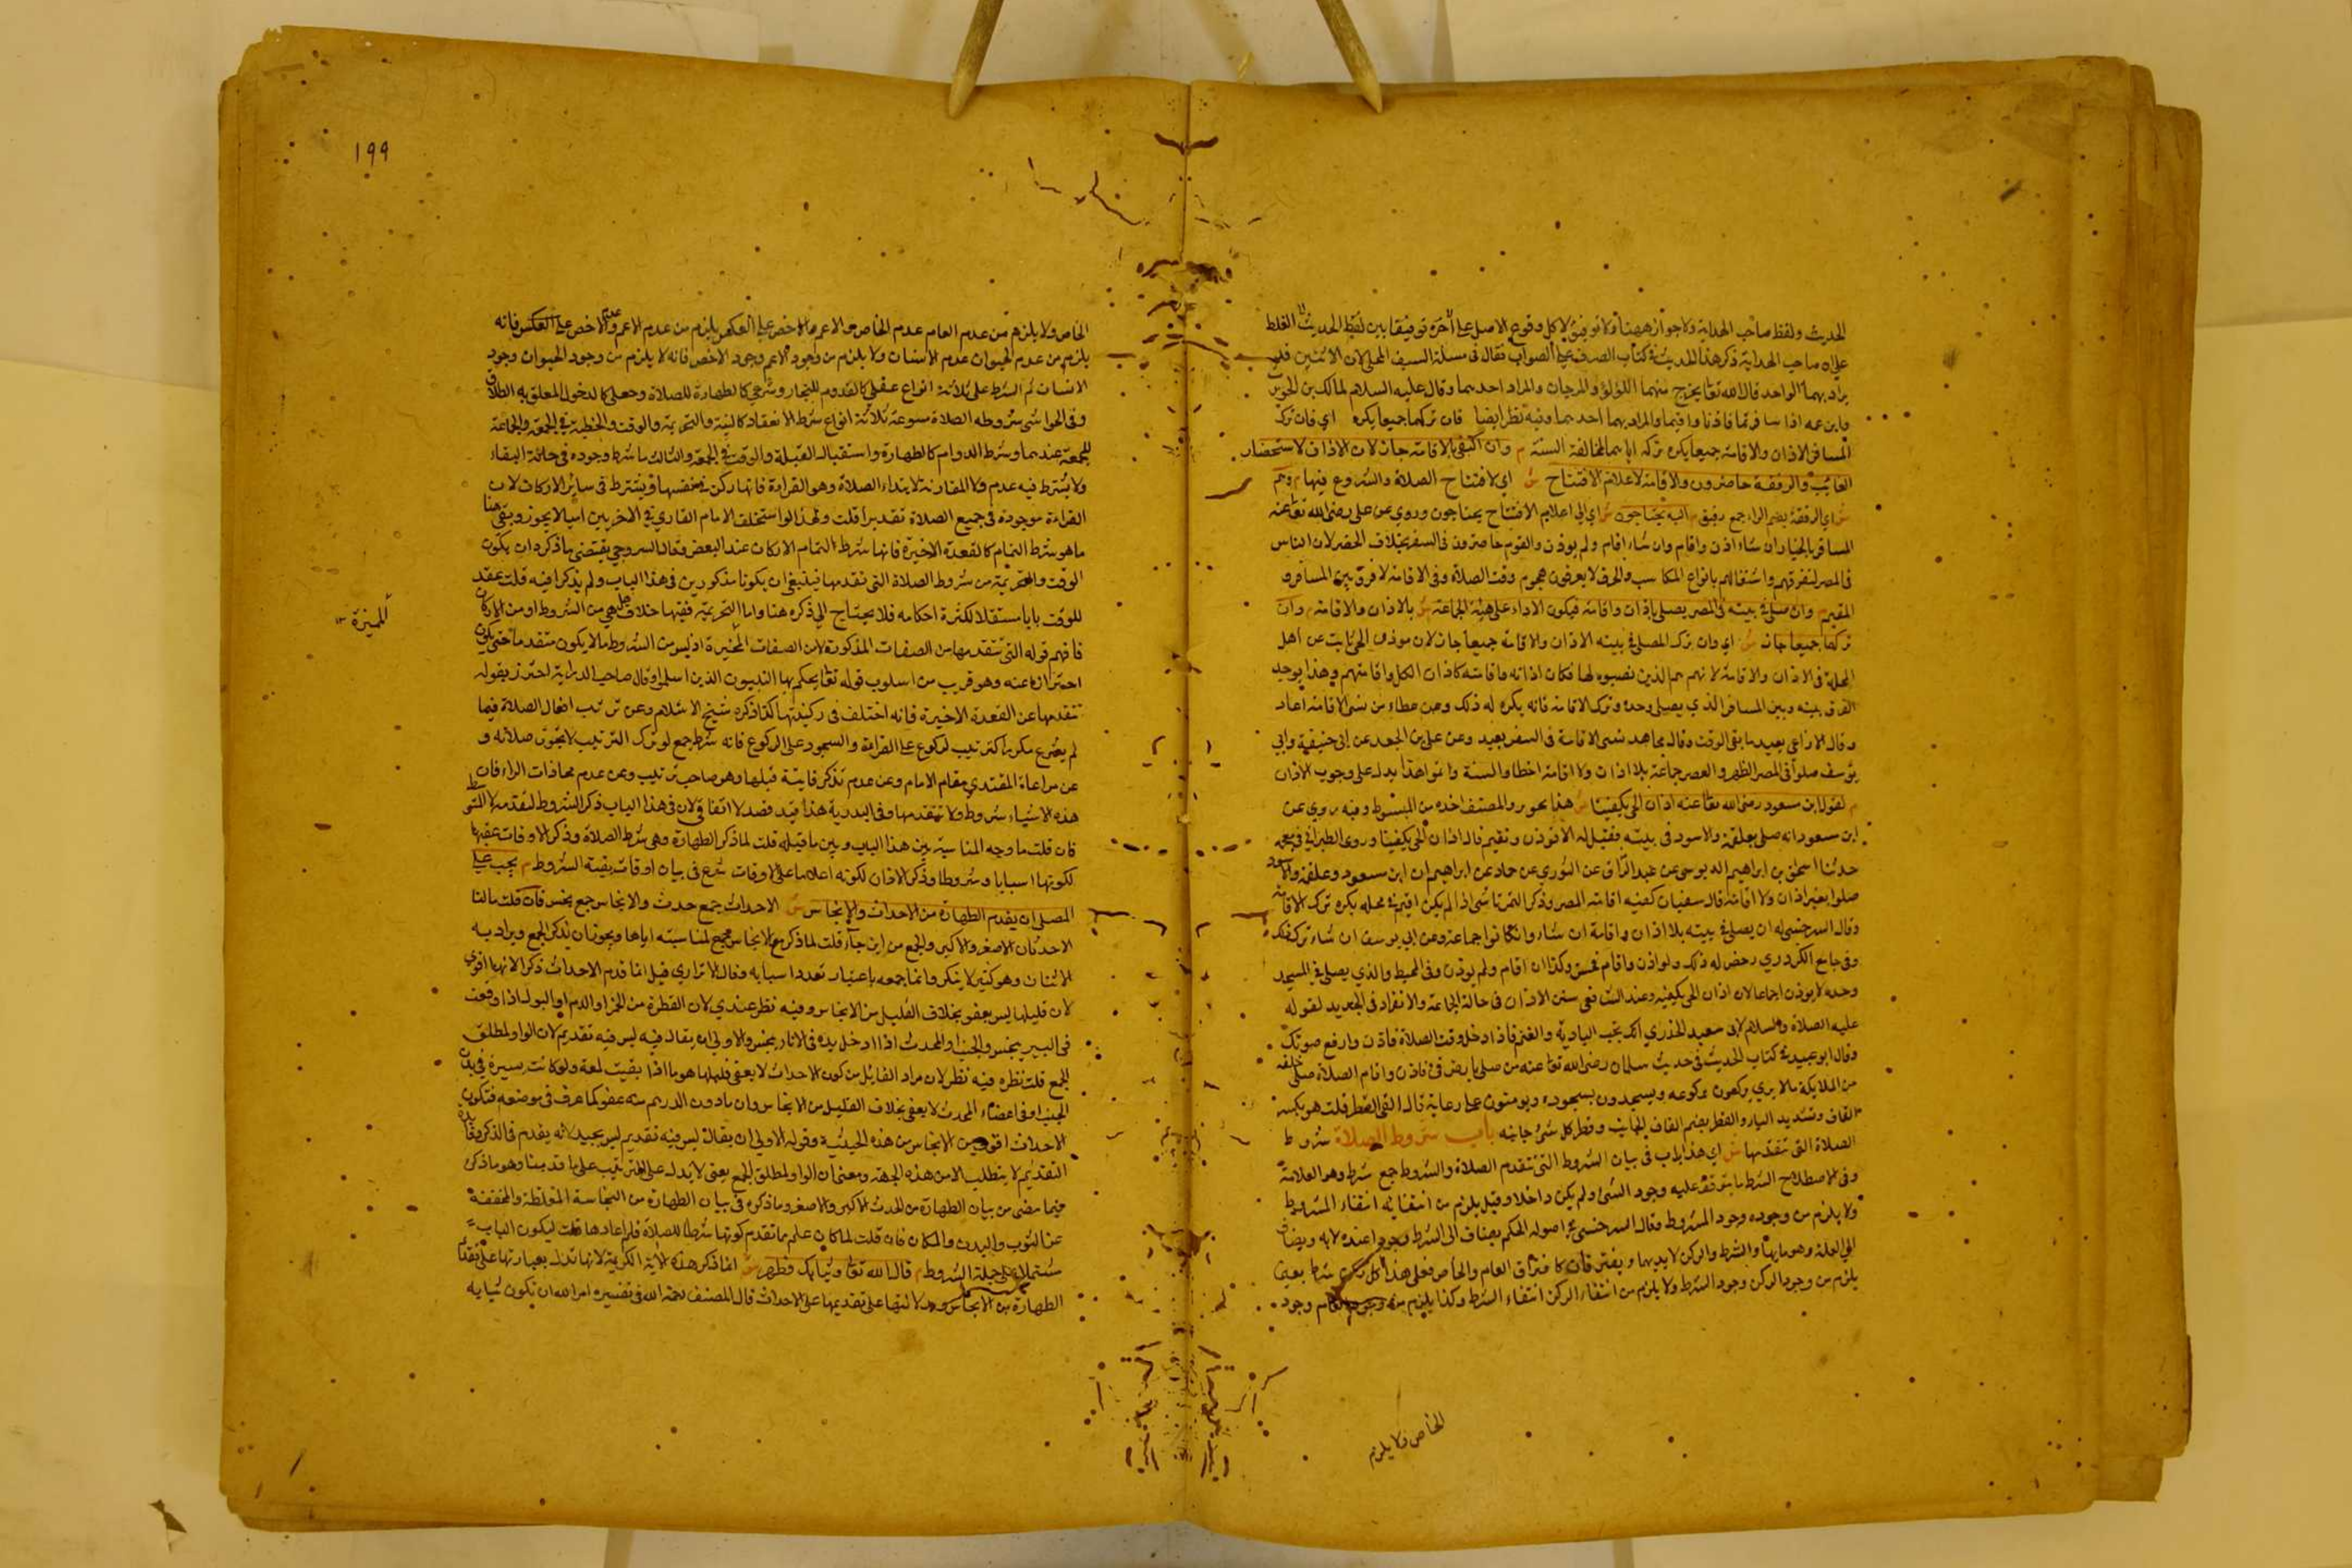 الحديث ولفظ صاحب الهداية ولا جواز ههنا ولا توفيق لا كل وقوع الاصل على آخره توفيقا بين لفظ الحديث الغلط
على ان صاحب الهداية ذكر هذا الحديث في كتاب الصرف على الصواب فقال في مسئلة السيف المحلى لان الاثنين قد
يراد بهما الواحد قال الله تعا يخرج منهما اللؤلؤ والمرجان والمراد احدهما وقال عليه السلام لمالك بن الحويرث
وابن عمه اذا سافرتما فاذنا واقيما والمراد بهما احدهما وفيه نظر ايضا فان تركهما جميعا يكره اي فان ترك
المسافر الاذان والاقامة جميعا يكره تركه اياهما لمخالفة السنة م وان اكتفى بالاقامة جاز لان الاذان لاستحضار
الغائب والرفقة حاضرون والاقامة لاعلام الافتتاح ش اي لافتتاح الصلاة والشروع فيها م وهم
ش اي الرفقة بضم الراء جمع رفيق م اليه يحتاجون ش اي الى اعلام الافتتاح يحتاجون وروي عن على رضى الله تعا عنه
المسافر بالخيار ان شاء اذن واقام وان شاء اقام ولم يوذن والقوم حاضرون في السفر بخلاف الحضر لان الناس
في المصر لتفرقهم واشتغالهم بانواع المكاسب والحرف لا يعرفون هجوم وقت الصلاة وفي الاقامة لا فرق بين المسافر و
المقيم م وان صلى في بيته في المصر يصلى باذان واقامة فيكون الاداء على هيئة الجماعة ش بالاذان والاقامة م وان
تركهما جميعا جاز ش اي وان ترك المصلى في بيته الاذان والاقامة جميعا جاز لان موذن الحي نايب عن اهل
المحلة في الاذان والاقامة لانهم هم الذين نصبوه لها فكان اذانه واقامته كاذان الكل واقامتهم وهذا يوجد
الفرق بينه وبين المسافر الذي يصلى وحده وترك الاقامة فانه يكره له ذلك وعن عطاء من نسى الاقامة اعاد
وقال الاوزاعي يعيد ما بقى الوقت وقال مجاهد نسى الاقامة في السفر يعيد وعن على بن الجعد عن ابي حنيفة وابي
يوسف صلوا في المصر الظهر والعصر جماعة بلا اذان ولا اقامة اخطاوا السنة واثموا هذا يدل على وجوب الاذان
م لقول ابن مسعود رضى الله تعا عنه اذان الحي يكفينا ش هذا بحرور والمصنف اخذه من المبسوط وفيه روي عن
ابن مسعود انه صلى بعلقمة والاسود في بيته فقيل له الا توذن وتقيم قال اذان الحي يكفينا وروى الطبراني في معجمه
حدثنا اسحق بن ابراهيم الدبوسى عن عبد الرزاق عن الثوري عن حماد عن ابراهيم ان ابن مسعود وعلقمة والاسود
صلوا بغير اذان ولا اقامة قال سفيان كفته اقامة المصر وذكر التمرتاشى اذا لم يكن اقيم في محله يكره ترك الاقامة
وقال السرخسى له ان يصلى في بيته بلا اذان واقامة ان شاء وان كانوا جماعة وعن ابي يوسف ان شاء ترك ذلك
وفي جامع الكردري رخص له ذلك ولو اذن واقام فحسن وكذا ان اقام ولم يوذن وفي المحيط والذي يصلى في المسجد
وحده لا يوذن اجماعا لان اذان الحي يكفيه وعند الشافعى سنن الاذان في حالة الجماعة والانفراد في الجديد لقوله
عليه الصلاة والسلام لابى سعيد الخدري انك تحب البادية والغنم فاذا دخل وقت الصلاة فاذن وارفع صوتك
وقال ابو عبيد في كتاب الحديث في حديث سلمان رضى الله تعا عنه من صلى بارض قي فاذن واقام الصلاة صلى خلفه
من الملايكة ما لا يرى يركعون بركوعه ويسجدون بسجوده ويومنون على دعايه قال القي القطر قلت هو بكسر
القاف وتشديد الياء والقطر بضم القاف الجانب وقطر كل شئ جانبه باب شروط الصلاة شروط
الصلاة التى تتقدمها ش اي هذا باب في بيان الشروط التى تتقدم الصلاة والشروط جمع شرط وهو العلامة
وفي الاصطلاح الشرط ما يتوقف عليه وجود الشئ ولم يكن داخلا وقيل يلزم من انتفائه انتفاء المشروط
ولا يلزم من وجوده وجود المشروط وقال السرخسى في اصوله الحكم يضاف الى الشرط وجودا عنده لا به ويضاف
الى العلة وجوبا بها والشرط والركن لا بد بهما ويفترقان كافتراق العام والخاص فعلى هذا كل ركن شرط بعينه
يلزم من وجود الركن وجود الشرط ولا يلزم من انتفاء الركن انتفاء الشرط وكذا يلزم من وجود العام وجود
الخاص ولا يلزم
١٩٩
الخاص ولا يلزم من عدم العام عدم الخاص والاعم والاخص على العكس يلزم من عدم الاعم عدم الاخص على العكس فانه
يلزم من عدم الحيوان عدم الانسان ولا يلزم من وجود الاعم وجود الاخص فانه لا يلزم من وجود الحيوان وجود
الانسان ثم الشرط على ثلاثة انواع عقلى كالقدوم للنجار وشرعي كالطهارة للصلاة وجعلى كالدخول المعلق به الطلاق
وفي الحواشى شروطه الصلاة متنوعة ثلاثة انواع شرط الانعقاد كالنية والتحريمة والوقت والخطبة في الجمعة والجماعة
للجمعة عندهما وشرط الدوام كالطهارة واستقبال القبلة والوقت في الجمعة والثالث ما شرط وجوده في حالة البقاء
ولا يشترط فيه عدم ولا المقارنة لابتداء الصلاة وهو القراءة فانها ركن في نفسها ويشترط في ساير الاركان لان
القراءة موجودة في جميع الصلاة تقديرا قلت ولهذا لو استخلف الامام القاري في الاخريين اميا لا يجوز وبقى هنا
ما هو شرط التمام كالقعدة الاخيرة فانها شرط التمام الاركان عند البعض وقال السروجي يقتضى ما ذكروا ان يكون
الوقت والتحريمة من شروط الصلاة التى تتقدمها فينبغي ان يكونا مذكورين في هذا الباب ولم يذكرا فيه قلت عقد
للوقت بابا مستقلا لكثرة احكامه فلا يحتاج الى ذكره هنا واما التحريمة ففيها خلاف هل هى من الشروط او من الاركان
المميزة
فافهم قوله التى تتقدمها من الصفات المذكورة لا من الصفات المميزة اذ ليس من الشروط ما لا يكون متقدما حتى يكون
احترازا عنه وهو قريب من اسلوب قوله تعا يحكم بها النبيون الذين اسلموا وقال صاحب الدراية احترز بقوله
تتقدمها عن القعدة الاخيرة فانه اختلف في ركنيتها كذا ذكره شيخ الاسلام وعن ترتيب افعال الصلاة فيما
لم يشرع مكررا كترتيب الركوع على القراءة والسجود على الركوع فانه شرط جمع لو ترك الترتيب لا يجوز صلاته و
عن مراعاة المقتدي مقام الامام وعن عدم تذكر فايتة قبلها وهو صاحب ترتيب وعن عدم محاذات المراة فان
هذه الاشياء شروط ولا تتقدمها وفي البدرية هذا قيد قصد لا اتفاقى لان في هذا الباب ذكر الشروط لتقدمه لا الشروط
فان قلت ما وجه المناسبة بين هذا الباب وبين ما قبله قلت لما ذكر الطهارة وهى شرط الصلاة وذكر الاوقات عقبها
لكونها اسبابا وشروطا وذكر الاذان لكونه اعلاما على الاوقات شرع في بيان اوقات بقية الشروط م يجب على
المصلى ان يقدم الطهارة من الاحداث والانجاس ش الاحداث جمع حدث والانجاس جمع نجس فان قلت مالنا
الا حدثان الاصغر والاكبر والجمع من اين جاء قلت لما ذكر مع الانجاس جمع لمناسبته اياها ويجوز ان يذكر الجمع ويراد به
الاثنان وهو كثير لا ينكر وانما جمعه باعتبار تعدد اسبابه وقال الاتراري قيل انما قدم الاحداث ذكرا لانها اقوى
لان قليلها ليس بعفو بخلاف القليل من الانجاس وفيه نظر عندي لان القطرة من الخمر او الدم او البول اذا وقعت
في البير ينجس والجنب او المحدث اذا ادخل يده في الاناء ينجس والاولى ان يقال فيه ليس فيه تقديم لان الواو لمطلق
الجمع قلت نظره فيه نظر لان مراد القايل من كون الاحداث لا يعفى قليلها هو ما اذا بقيت لمعة ولو كانت يسيرة في بدن
الجنب او في اعضاء المحدث لا يعفى بخلاف القليل من الانجاس وان ما دون الدرهم منه عفو كما عرف في موضعه فتكون
الاحداث اقوى من الانجاس من هذه الحيثية وقوله الاولى ان يقال ليس فيه تقديم ليس بجيد لانه يقدم في الذكر وفايدة
التقديم لا يتطلب الا من هذه الجهة ومعنى ان الواو لمطلق الجمع يعنى لا يدل على الترتيب على ما قدمنا وهو ما ذكر
فيما مضى من بيان الطهارة من الحدث الاكبر والاصغر وما ذكره في بيان الطهارة من النجاسة المغلظة والمخففة
عن الثوب والبدن والمكان فان قلت لما كان علم مما تقدم كونها شرطا للصلاة فلم اعادها قلت ليكون الباب
مشتملا على جملة الشروط م قال الله تعا وثيابك فطهر ش انما ذكر هذه الآية الكريمة لانها تدل بعبارتها على تقديم
الطهارة من الانجاس وبدلالتها على تقديمها على الاحداث قال المصنف رحمه الله في تفسيره امر الله ان تكون ثيابه